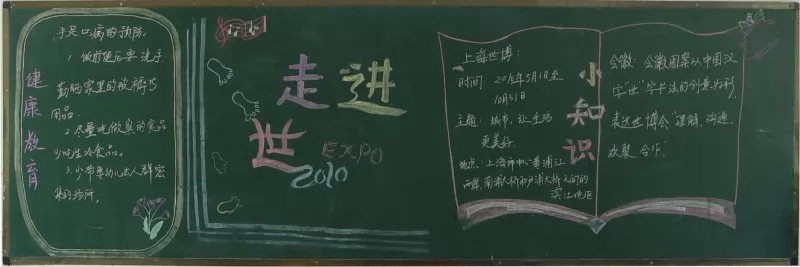 健康教育
手足口病的预防:
1. 饭前便后要洗手
勤晒家里的被褥与
用品。
2. 尽量吃做熟的食品
少吃生冷食品。
3. 少带婴幼儿去人群密
集的场所。
走进
世
EXPO
2010
小知识
上海世博:
时间 2010年5月1日至
10月31日
主题: 城市,让生活
更美好
地点: 上海市中心黄浦江
两岸,南浦大桥和卢浦大桥之间的
滨江地区
会徽: 会徽图案从中国汉
字“世”字书法的创意为形,
表达世博会“理解,沟通,
欢聚,合作。